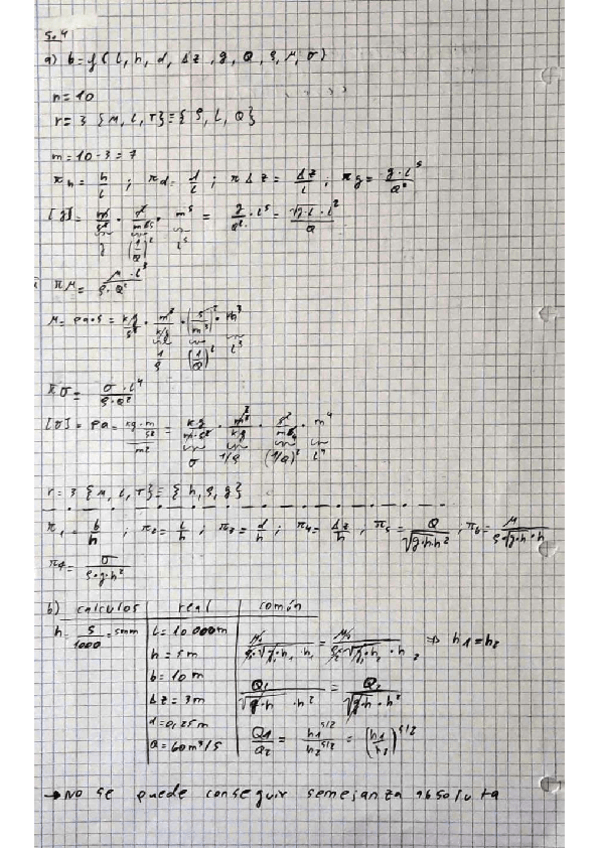 5.4
a) b = f ( l, h, d, Δz, g, Q, ρ, μ, σ )
n = 10
r = 3 {M, L, T} = {ρ, L, Q}
m = 10 - 3 = 7
πh = h/l ; πd = d/l ; πΔz = Δz/l ; πg = g·l⁵/Q²
[g] = m/s² · s²/m⁶ · m⁵ = g/Q² · l⁵ = √g·l · l²/Q
g (1/Q)² l⁵
πμ = μ·l³/ρ·Q²
μ = Pa·s = kg/s² · m³/kg · (s/m³)² · m³
1/ρ (1/Q)² l³
πσ = σ·l⁴/ρ·Q²
[σ] = Pa = kg·m/s²/m² = kg/m·s² · m³/kg · s²/m⁶ · m⁴
σ 1/ρ (1/Q)² l⁴
r = 3 {M, L, T} = {h, ρ, g}
π₁ = b/h ; π₂ = l/h ; π₃ = d/h ; π₄ = Δz/h ; π₅ = Q/√g·h·h² ; π₆ = μ/ρ·√g·h·h
π₇ = σ/ρ·g·h²
b) calculos real común
h = 5/1000 = 5mm l = 10 000m μ₁/ρ₁·√g₁·h₁·h₁ = μ₂/ρ₂·√g₂·h₂·h₂ ⇒ h1 = h₂
h = 5m
b = 10m Q₁/√g·h·h² = Q₂/√g·h·h²
Δz = 3m
d = 0,25m Q1/Q2 = h1^5/2/h2^5/2 = (h1/h2)^5/2
Q = 60m³/s
→ No se puede conseguir semejanza absoluta